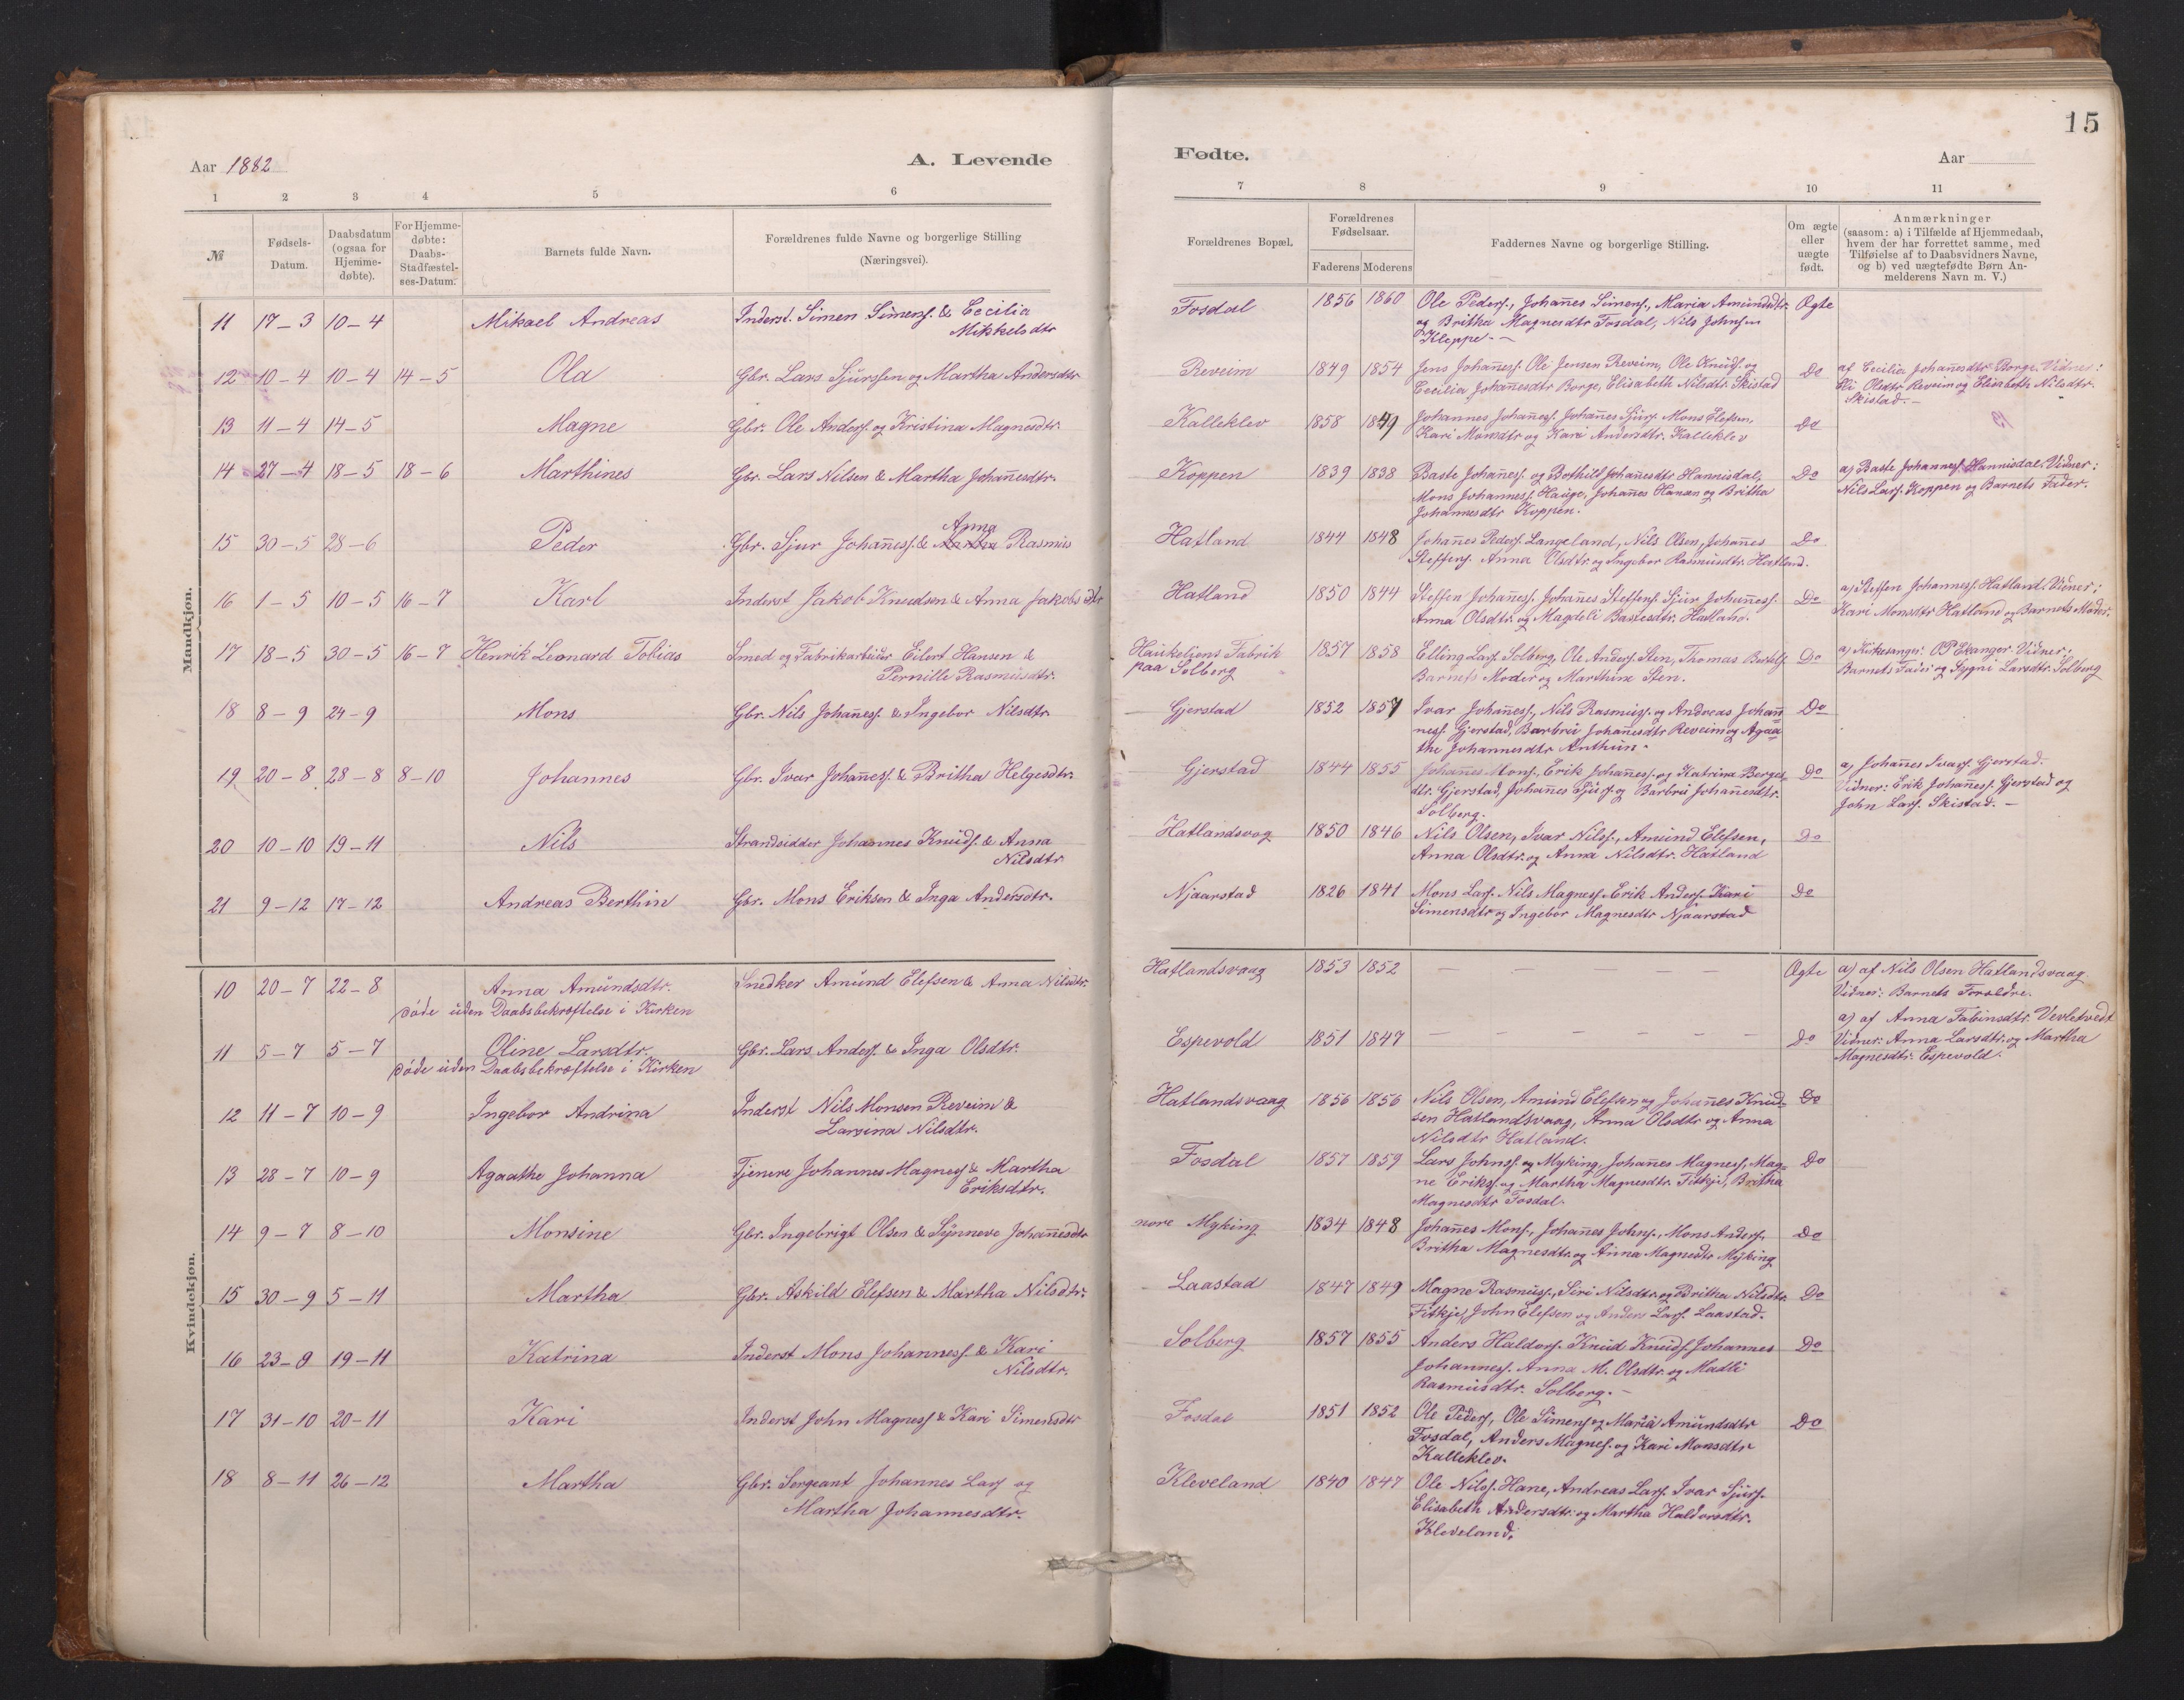 15
Aar 1882
A. Levende
Fødte.
Aar
1 2 3 4 5 6 7 8 9 10 11
№
Fødsels-
Datum.
Daabsdatum
(ogsaa for
Hjemme-
døbte).
For Hjemme-
døbte:
Daabs-
Stadfæstel-
ses-Datum.
Barnets fulde Navn.
Forældrenes fulde Navne og borgerlige Stilling
(Næringsvei).
Forældrenes Bopæl.
Forældrenes
Fødselsaar.
Faderens Moderens
Faddernes Navne og borgerlige Stilling.
Om ægte
eller
uægte
født.
Anmærkninger
(saasom: a) i Tilfælde af Hjemmedaab,
hvem der har forrettet samme, med
Tilføielse af to Daabsvidners Navne,
og b) ved uægtefødte Børn An-
melderens Navn m. V.)
Mandkjøn.
11 17-3 10-4 Mikael Andreas Inderst. Simen Simens. & Cecilia
Mikkelsdtr
Fosdal 1856 1860 Ole Peders., Johañes Simens., Maria Amundsdtr. Ægte
og Britha Magnesdtr Fosdal, Nils Johnsen
Kleppe.
12 10-4 10-4 14-5 Ola Gbr. Lars Sjurssen og Martha Andersdtr
Reveim 1849 1854 Jens Johañess. Ole Jensen Reveim, Ole Knuds. og Do af Cecilia Johañesdtr Borge. Vidner:
Cecilia Johañesdtr Borge, Elisabeth Nilsdtr. Skistad Eli Olsdtr Reveim og Elisabeth Nilsdtr.
Skistad.
13 11-4 14-5 Magne Gbr. Ole Anders. og Kristina Magnesdtr.
Kalleklev 1858 1849 Johannes Johañess. Johañes Sjurs. Mons Elefsen, Do
Kari Monsdtr og Kari Andersdtr. Kalleklev
14 27-4 18-5 18-6 Marthines Gbr. Lars Nilsen & Martha Johañesdtr.
Koppen 1839 1838 Baste Johañess. og Bothild Johañesdtr Hannisdal, Do a) Baste Johannes. Hannisdal. Vidner:
Mons Johanness. Hauge, Johañes Hansen og Britha Nils Lars. Koppen og Barnets Fader.
Johannesdtr Koppen.
15 30-5 28-6 Peder Gbr. Sjur Johañess. & Anna Rasmus
Hatland 1844 1848 Johañes Peders. Langeland, Nils Olsen, Johañes Do
Steffens. Anna Olsdtr. og Ingebor Rasmusdtr. Hatland.
16 1-5 10-5 16-7 Karl Inderst Jakob Knudsen & Anna Jakobsdtr
Hatland 1850 1844 Steffen Johañess. Johañes Steffens. Sjur Johañess. Do a) Steffen Johanness. Hatland. Vidner:
Anna Olsdtr. og Magdeli Bastesdtr. Hatland. Kari Monsdtr Hatland og Barnets Moder.
17 18-5 30-5 16-7 Henrik Leonard Tobias Smed og Fabrikarbeider Eilert Hansen &
Pernille Rasmusdtr.
Haukeliens Fabrik 1857 1858 Elling Lars. Solberg, Ole Anders. Sten, Thomas Bertels. Do a) Kirkesanger O P Ekanger. Vidner:
paa Solberg Barnets Moder og Marthine Sten. Barnets Fader og Sygni Larsdtr. Solberg
18 8-9 24-9 Mons Gbr. Nils Johañess. & Ingebor Nilsdtr.
Gjerstad 1852 1857 Ivar Johañess., Nils Rasmuss. og Andreas Johañ Do
ness. Gjerstad, Barbru Johañesdtr Reveim og Agaa
the Johannesdtr Anthun.
19 20-8 28-8 8-10 Johannes Gbr. Ivar Johañess. & Britha Helgesdtr.
Gjerstad 1844 1855 Johañes Mons., Erik Johañess. og Katrina Berges- Do a) Johañes Ivars. Gjerstad.
dtr. Gjerstad, Johañes Sjurs. og Barbru Johañesdtr. Vidner: Erik Johañess. Gjerstad og
Solberg. John Lars. Skistad.
20 10-10 19-11 Nils Strandsidder Johannes Knuds. & Anna
Nilsdtr
Hatlandsvog 1850 1846 Nils Olsen, Ivar Nilss., Amund Elefsen, Do
Anna Olsdtr. og Anna Nilsdtr. Hatland
21 9-12 17-12 Andreas Berthin Gbr. Mons Eriksen & Inga Andersdtr.
Njaarstad 1826 1841 Mons Lars. Nils Magness. Erik Anders. Kari Do
Simensdtr og Ingebor Magnesdtr Njaarstad
Kvindekjøn.
10 20-7 22-8 Anna Amundsdtr. Snedker Amund Elefsen & Anna Nilsdtr.
Døde uden Daabsbekræftelse i Kirken
Hatlandsvaag 1853 1852 — — — — Ægte a) af Nils Olsen Hatlandsvaag.
Vidner: Barnets Forældre.
11 5-7 5-7 Oline Larsdtr. Gbr. Lars Anders. & Inga Olsdtr.
Døde uden Daabsbekræftelse i Kirken
Espevold 1851 1847 — — — — — — Do a) af Anna Fabinsdtr. Vevletvedt
Vidner: Anna Larsdtr. og Martha
Magnesdtr. Espevold.
12 11-7 10-9 Ingebor Andrina Inderst Nils Monsen Reveim &
Larsina Nilsdtr.
Hatlandsvaag 1856 1856 Nils Olsen, Amund Elefsen og Johañes Knud- Do
sen Hatlandsvaag, Anna Olsdtr og Anna
Nilsdtr Hatland.
13 28-7 10-9 Agaathe Johanna Tjenere Johannes Magness & Martha
Eriksdtr.
Fosdal 1857 1859 Lars Johnss. og Myking, Johañes Magness., Mag- Do
ne Eriks. og Martha Magnesdtr. Fitkje, Britha
Magnesdtr Fosdal.
14 9-7 8-10 Monsine Gbr. Ingebrigt Olsen & Synneve Johañesdtr
nore Myking 1834 1848 Johañes Mons., Johañes Johns., Mons Anders. Do
Britha Magnesdtr. og Anna Magnesdtr Myking
15 30-9 5-11 Martha Gbr. Askild Elefsen & Martha Nilsdtr.
Laastad 1847 1849 Magne Rasmuss., Siri Nilsdtr. og Britha Nilsdtr. Do
Fitkje, John Elefsen og Anders Lars. Laastad.
16 23-9 19-11 Katrina Inderst Mons Johanness. & Kari
Nilsdtr.
Solberg 1857 1855 Anders Haldors. Knud Knuds. Johannes Do
Johanness. Anna M. Olsdtr. og Madli
Rasmusdtr. Solberg.
17 31-10 20-11 Kari Inderst John Magness & Kari Simensdtr
Fosdal 1851 1852 Ole Peders, Ole Simens og Maria Amundsdtr Do
Fosdal, Anders Magnes. og Kari Monsdtr
Kalleklev.
18 8-11 26-12 Martha Gbr. Sergeant Johannes Lars og
Martha Johannesdtr.
Kleveland 1840 1847 Ole Nilss. Hane, Andreas Lars. Ivar Sjurs.
Elisabeth Andersdtr. og Martha Haldorsdtr.
Kleveland.